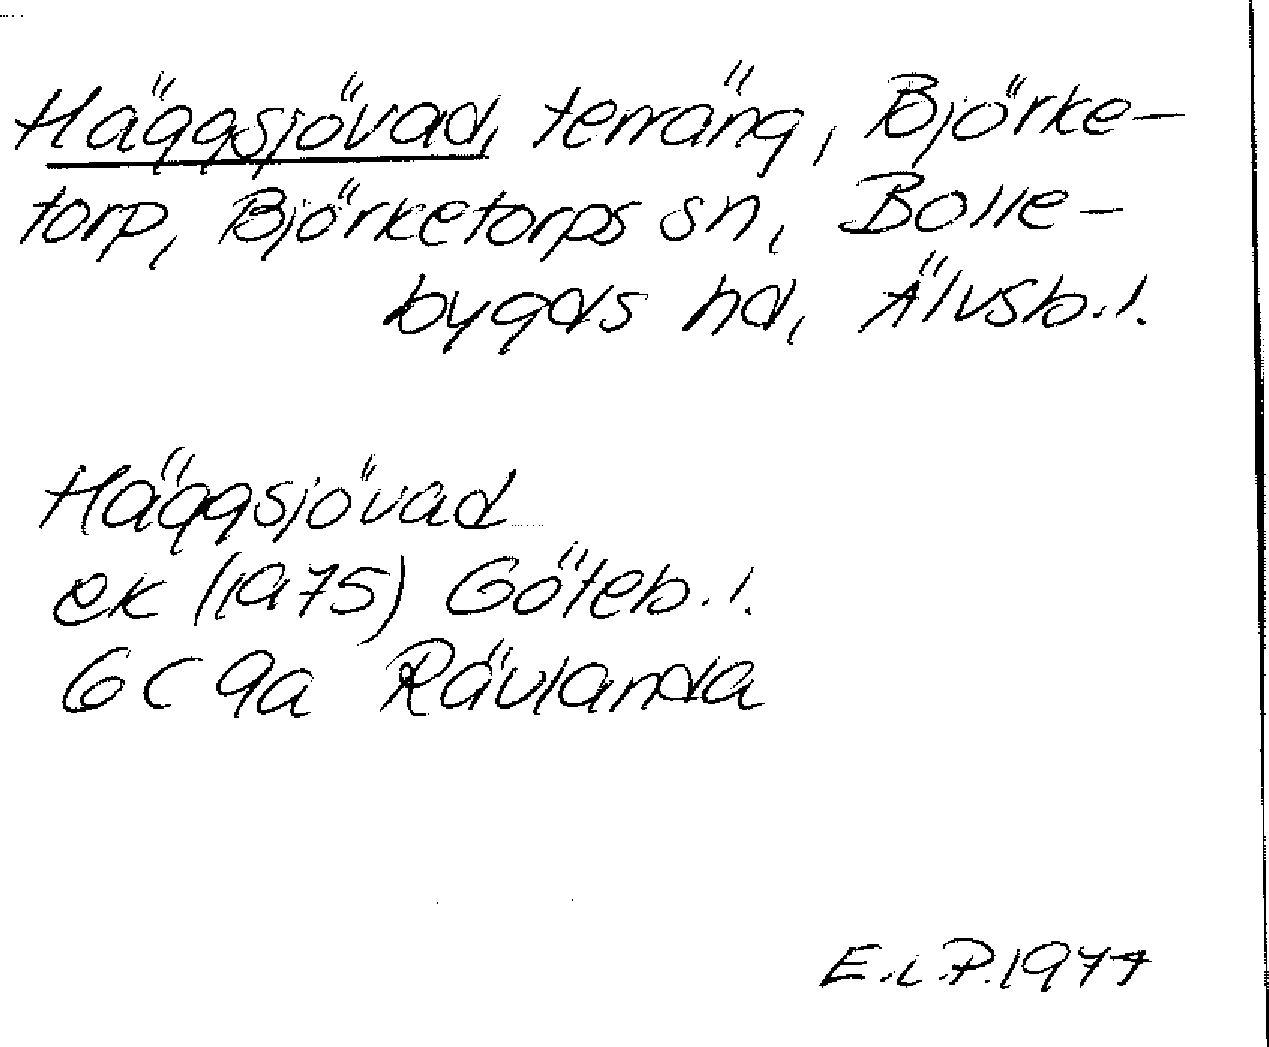 Häggsjövad, terräng, Björke-
torp, Björketorps sn, Bolle-
bygds hd, Älvsb.l.
Häggsjövad
ek (1975) Göteb.l.
6C 9a Rävlanda
E.L.P.1977